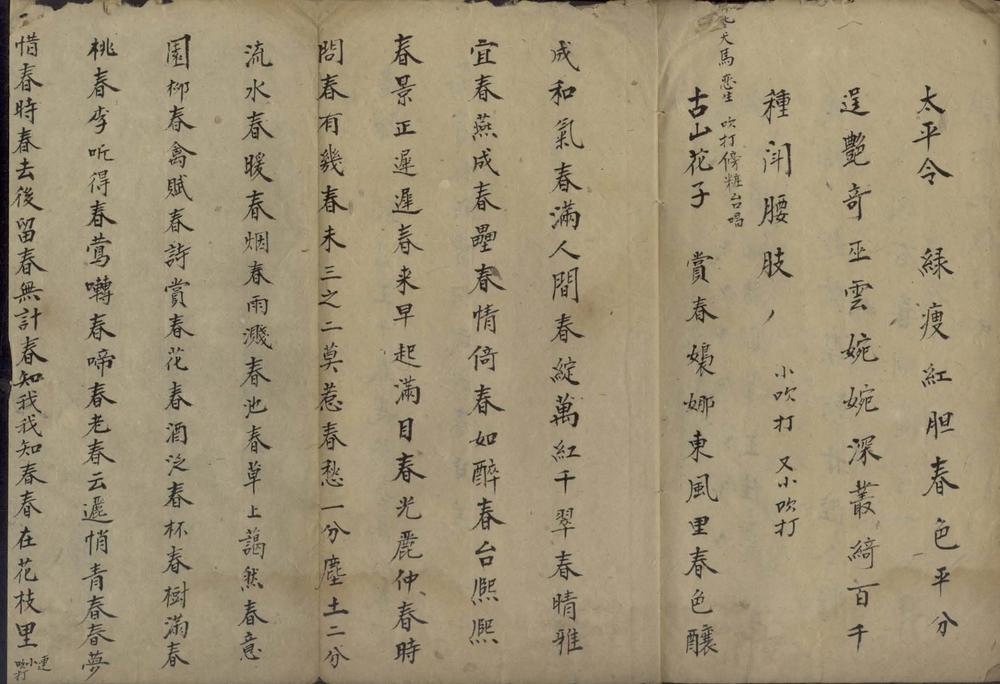 太平令　綠瘦紅胆春色平分
逞艷奇巫雲婉婉深叢綺百千
種鬦腰肢　小吹打　又小吹打
犬馬恋生　吹打傍粧台唱
古山花子　賞春嬝娜東風里春色釀
成和氣春滿人間春綻萬紅千翠春晴雅
宜春燕成春壘春情倚春如醉春台熈熈
春景正遲遲春来早起滿目春光麗仲春時
問春有幾春未三之二莫惹春愁一分塵土二分
流水春暖春烟春雨濺春池春草上藹然春意
園柳春禽賦春詩賞春花春酒泛春杯春樹滿春
桃春李听得春鶯囀春啼春老春云邐悄青春春夢
惜春時春去後留春無計春知我我知春春在花枝里　連小吹打